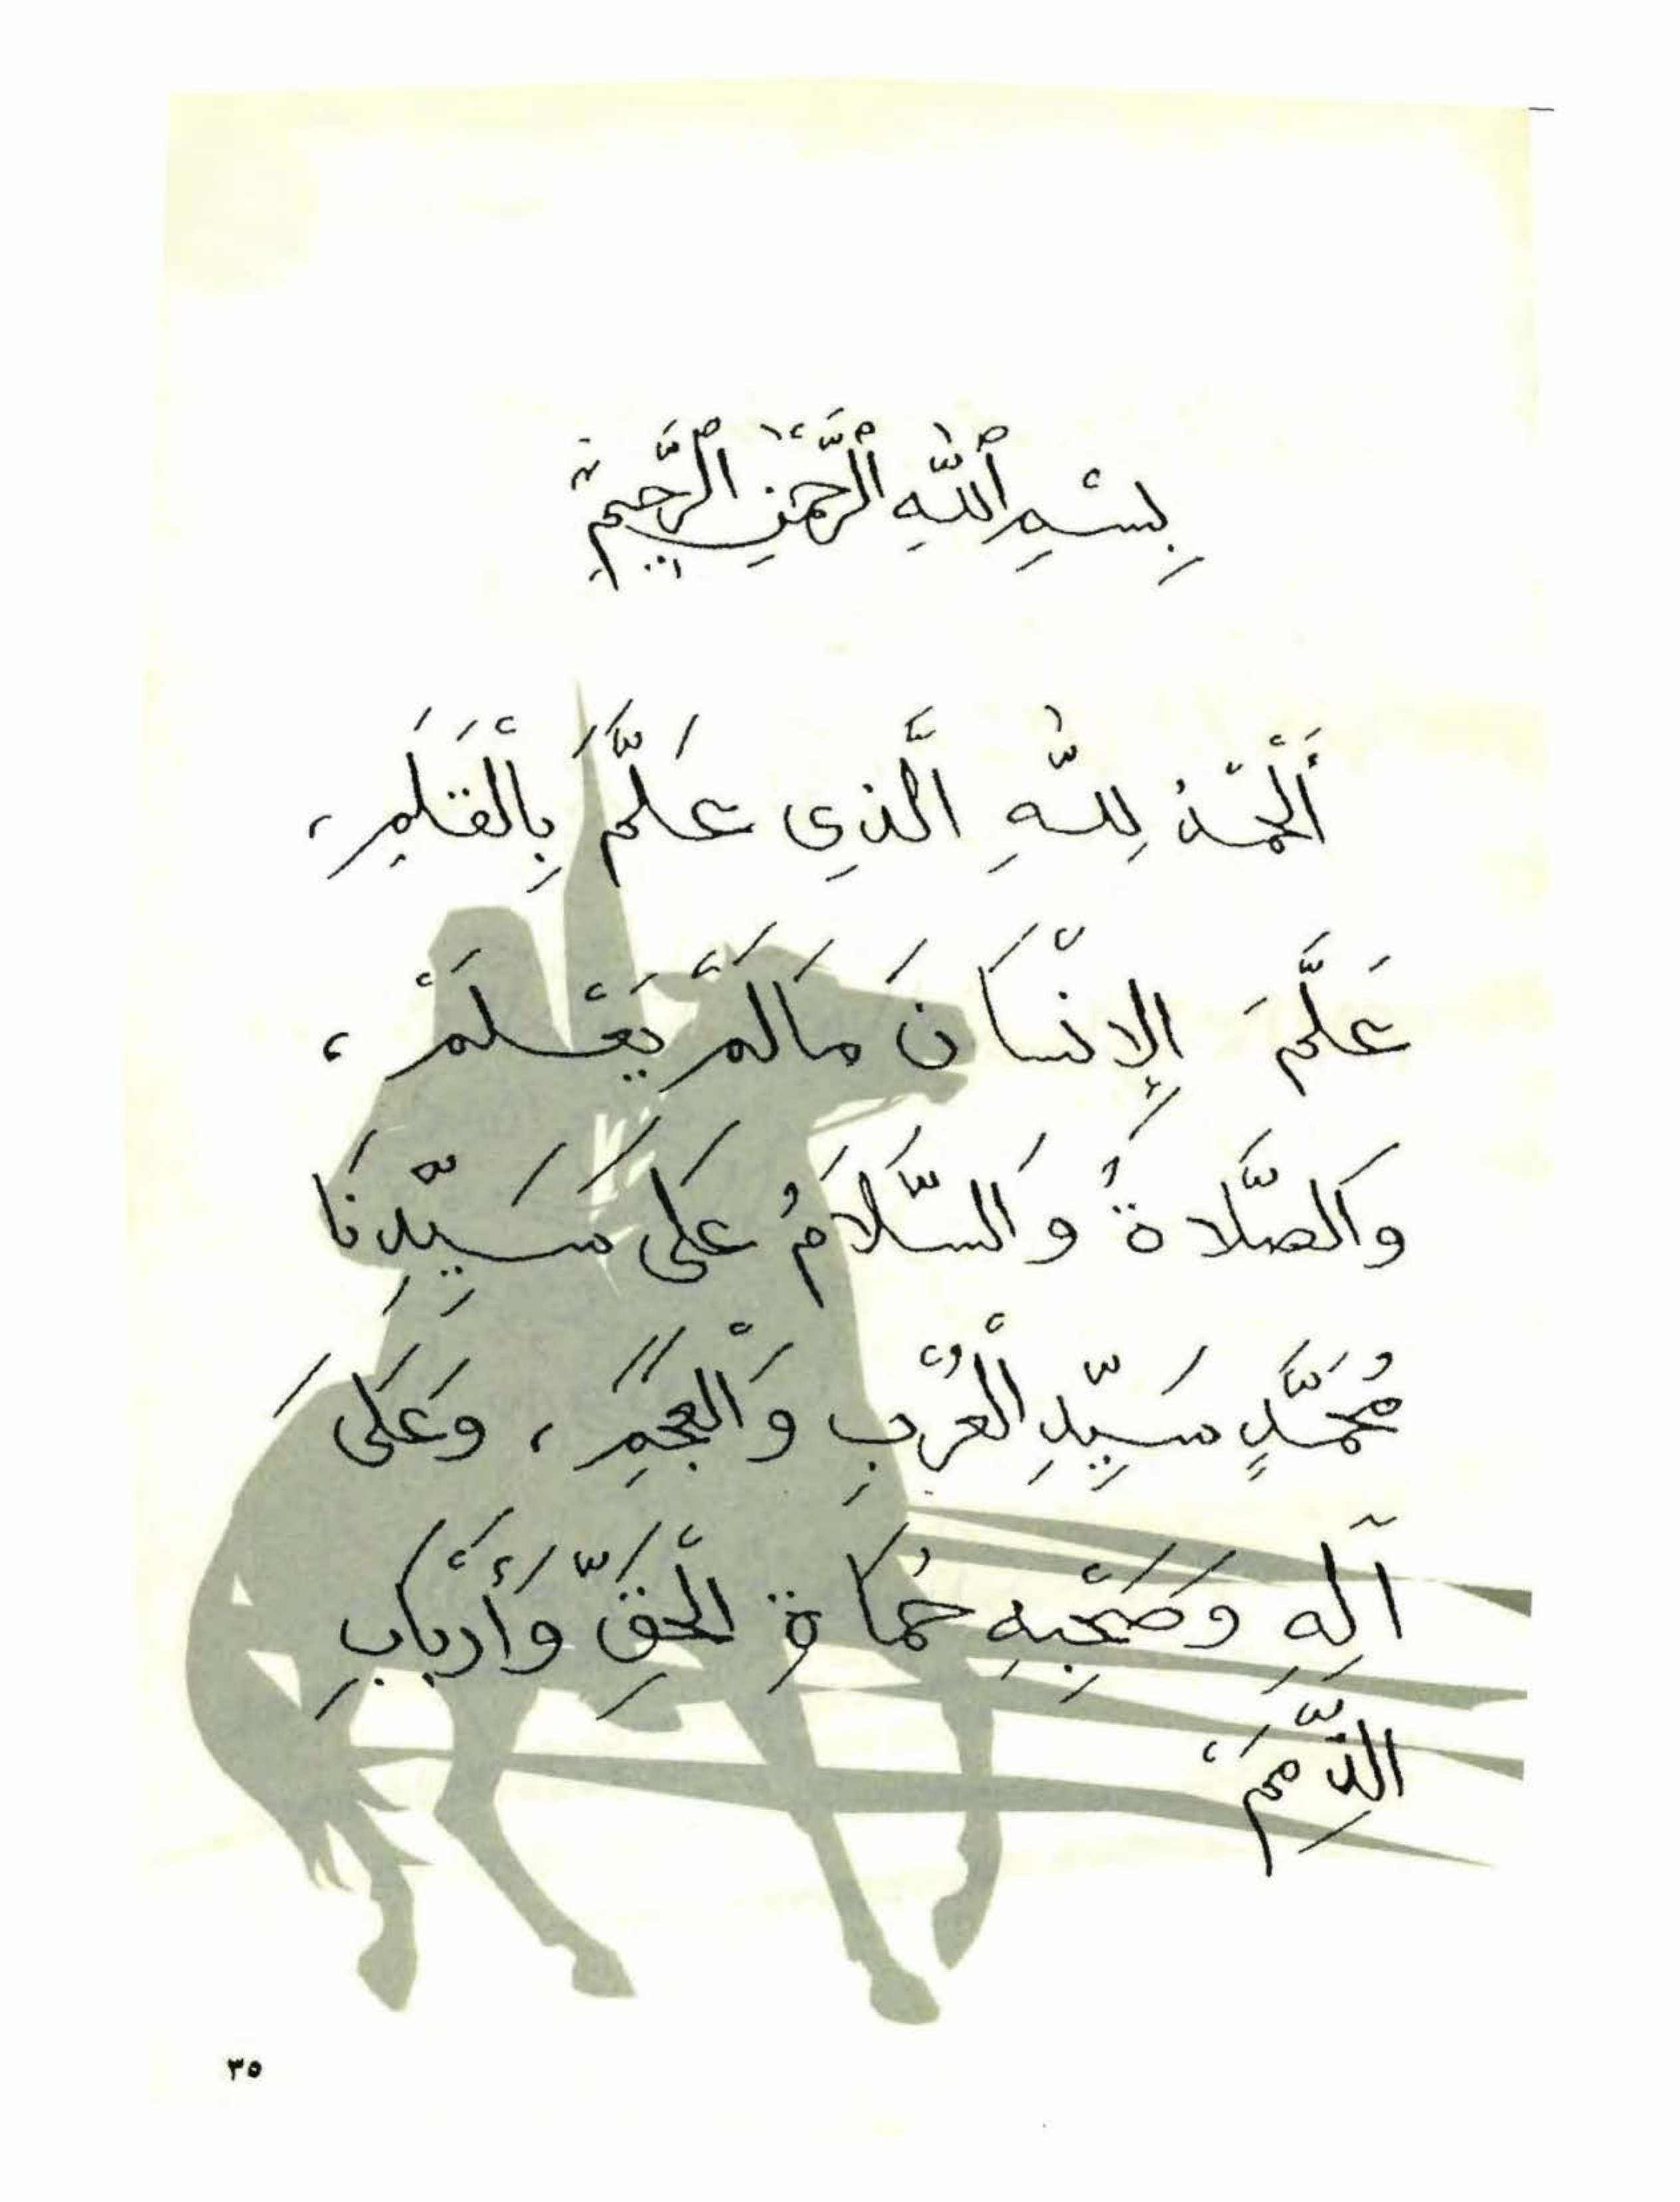 بِسْمِ ٱللَّهِ ٱلرَّحْمَٰنِ ٱلرَّحِيمِ
أَلْحَمْدُ لِلَّهِ الَّذِي عَلَّمَ بِالْقَلَمِ ،
عَلَّمَ الإِنْسَانَ مَا لَمْ يَعْلَمْ ،
وَالصَّلاةُ وَالسَّلَامُ عَلَى سَيِّدِنَا
مُحَمَّدٍ سَيِّدِ الْعُرْبِ وَالْعَجَمِ ، وَعَلَى
آلِهِ وَصَحْبِهِ حُمَاةِ الْحَقِّ وَأَرْبَابِ
الذِّمَمِ ،
٣٥